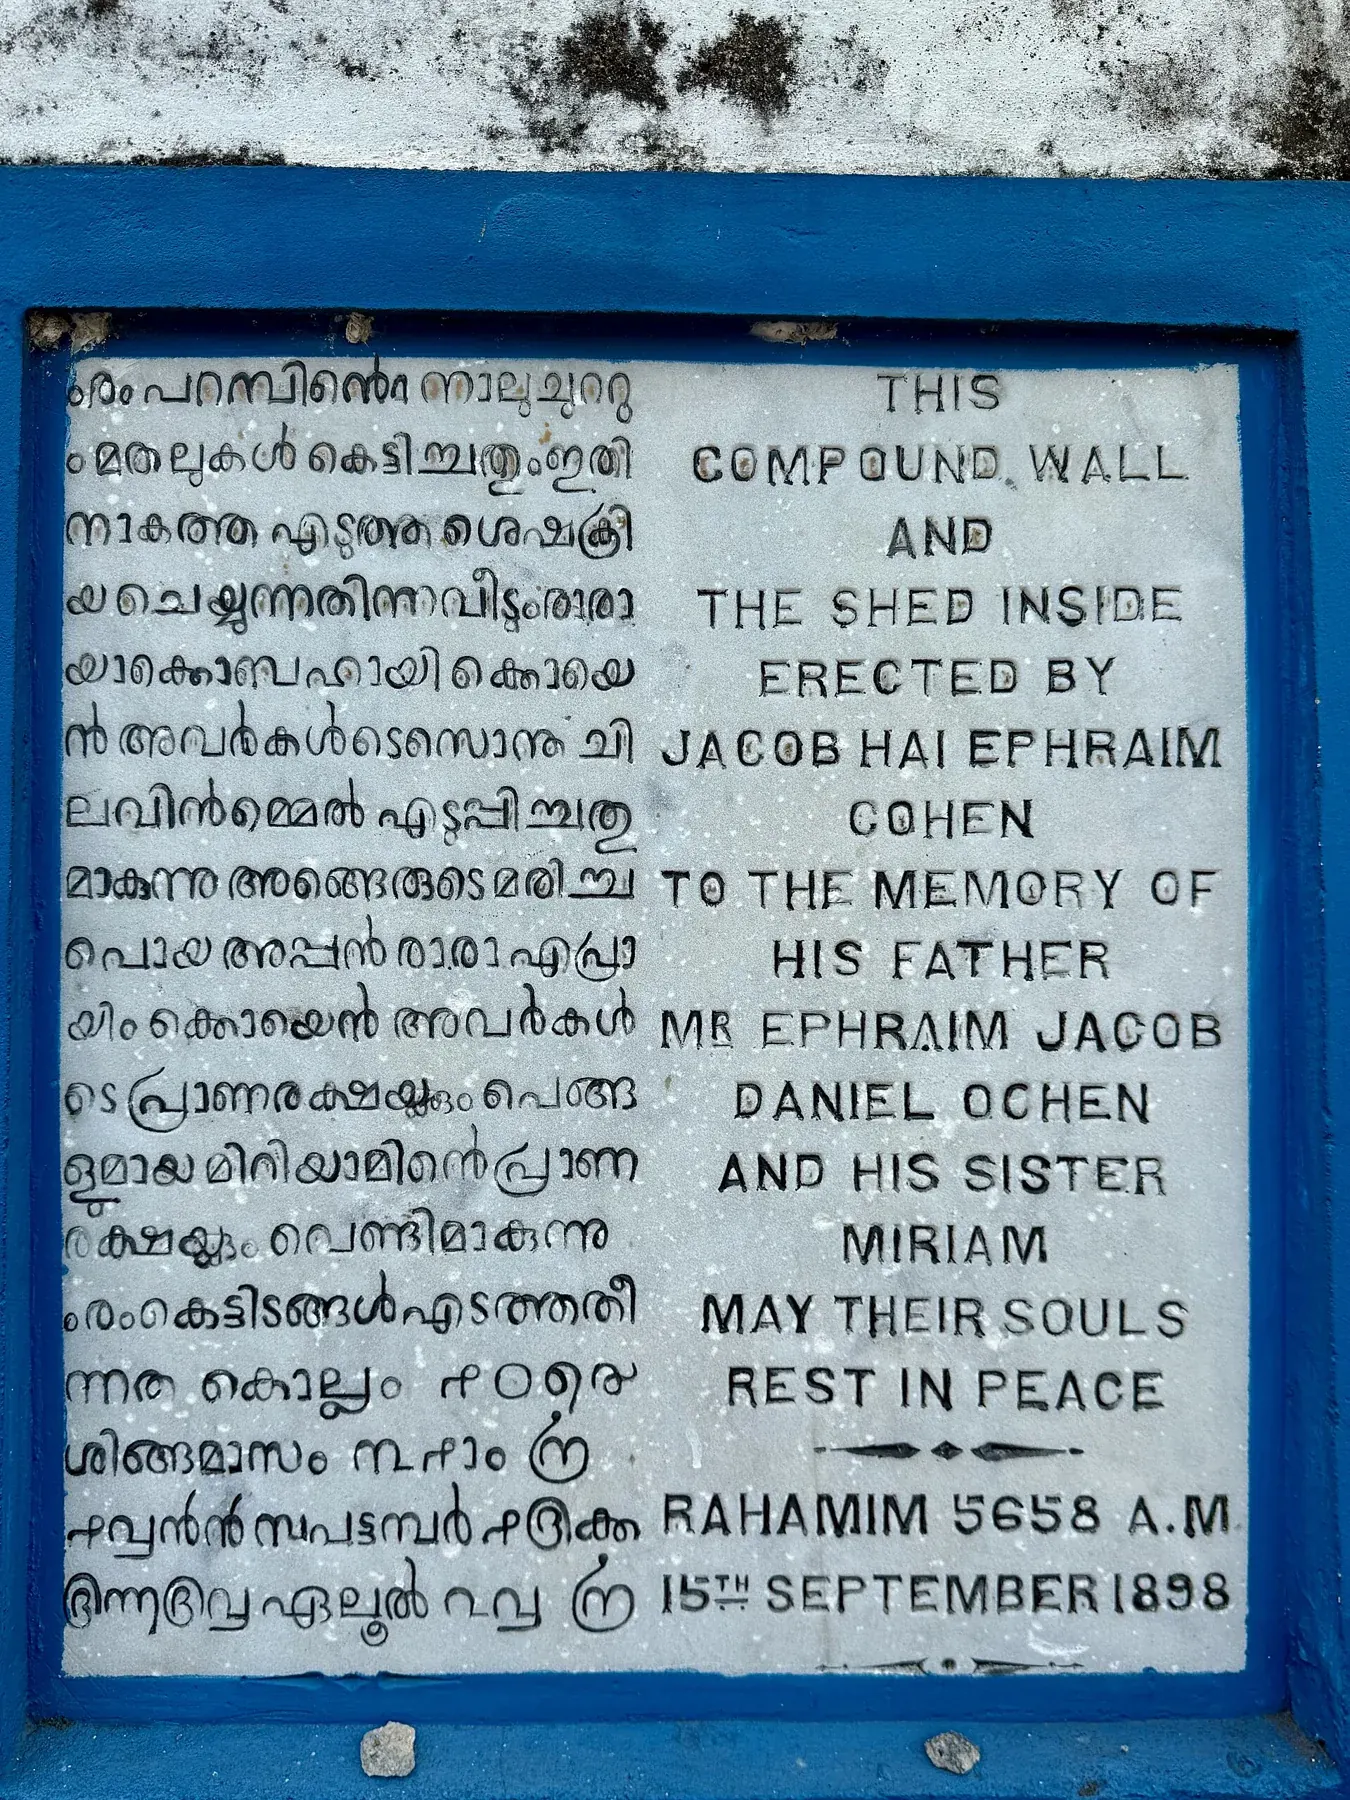 ൟ പറമ്പിൻെറ നാലുചുററു
ം മതലുകൾ കെട്ടിച്ചതും ഇതി
നാകത്ത എടുത്ത ശെഷക്രി
യ ചെയ്യുന്നതിന്നാവീടും രാരാ
യാക്കൊബഹായി ക്കൊയെ
ൻ അവർകൾടെസൊന്ത ചി
ലവിൻമ്മെൽ എടുപ്പിച്ചതു
മാകുന്നു അങ്ങെരുടെമരിച്ച
പൊയ അപ്പൻ രാരാ എപ്രാ
യിം ക്കൊയെൻ അവർകൾ
ടെ പ്രാണരക്ഷയ്ക്കും പെങ്ങ
ളുമായ മിറിയാമിൻെ പ്രാണ
രക്ഷയ്ക്കും വെണ്ടിമാകുന്നു
ൟകെട്ടിടങ്ങൾ എടത്തതീ
ന്നത കൊല്ലം ൧൦൭൪
ശിങ്ങമാസം ൩൧ാം ൹
൧൮൯൯ സപട്ടമ്പർ ൧൫ക്ക
൫൬൫൮ ഏലൂൽ ൨൮ ൹
THIS
COMPOUND WALL
AND
THE SHED INSIDE
ERECTED BY
JACOB HAI EPHRAIM
COHEN
TO THE MEMORY OF
HIS FATHER
MR EPHRAIM JACOB
DANIEL OCHEN
AND HIS SISTER
MIRIAM
MAY THEIR SOULS
REST IN PEACE
RAHAMIM 5658 A.M.
15TH SEPTEMBER 1898